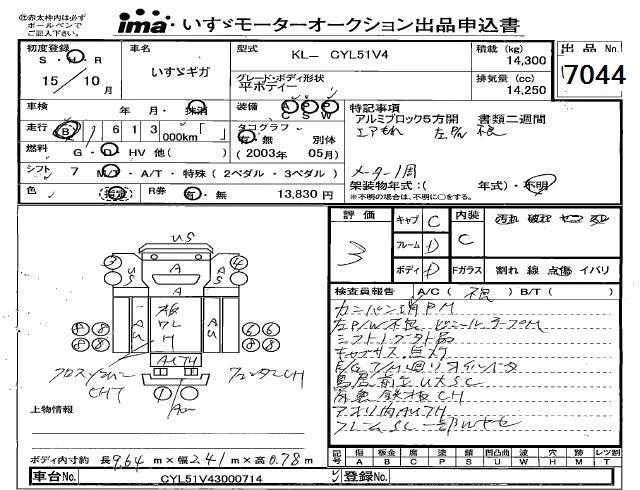 ㊟赤太枠内は必ず
ボールペンで
ご記入下さい。
ima いすゞモーターオークション出品申込書
初度登録 S・H・R 15/10月
車名 いすゞギガ
型式 KL- CYL51V4
グレード・ボディ形状 平ボディー
積載 (kg) 14,300
排気量 (cc) 14,250
出品No. 7044
車検 年 月・抹消
装備 A/C P/S P/W
走行 B 1613 000km「 」
タコグラフ 有・無 別体
(2003年 05月)
燃料 G・D・HV 他( )
シフト 7 M/T・A/T・特殊(2ペダル・3ペダル)
色 指定 R券 有・無 13,830円
特記事項
アルミブロック5方開 書類二週間
エアもれ 左P/W 不良
メーター1周
架装物年式:( 年式)・不明
※不明の場合は、不明に○をする。
評価 3
キャブ C
フレーム D
ボディ D
内装 C
汚れ 破れ ヤニ スレ
Fガラス 割れ 線 点傷 イバリ
検査員報告 A/C( 不良 )B/T( )
カンバン消PM
左P/W不良 ビニールテープM
シフトノブ欠品
鳥居前立UXSC
荷魚鉄板CH
アオリ内AU7H
フレームSC
US
A
A
US
US
A
AU
AU
板
ワレ
H
AU7H
3
4
8 8
8 8
6 6
6 6
CH7
上物情報
ボディ内寸約 長9.64m×幅2.41m×高0.78m
記号 傷 板金 腐 塗 錆 凹凸曲 波 穴 跡 レツ割
A B C P S U W H M T
車台No. CYL51V43000714
登録No.